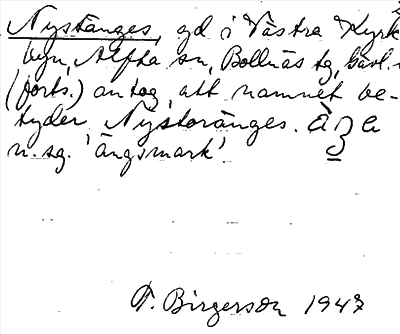 Nystänges, gd i Västra Kyrk
byn, Alfta sn, Bollnäs tg, Gävl.
(forts.) antog, att namnet be-
tyder Nystoränges.
n. sg. 'ängsmark'.
T. Birgerson 1947